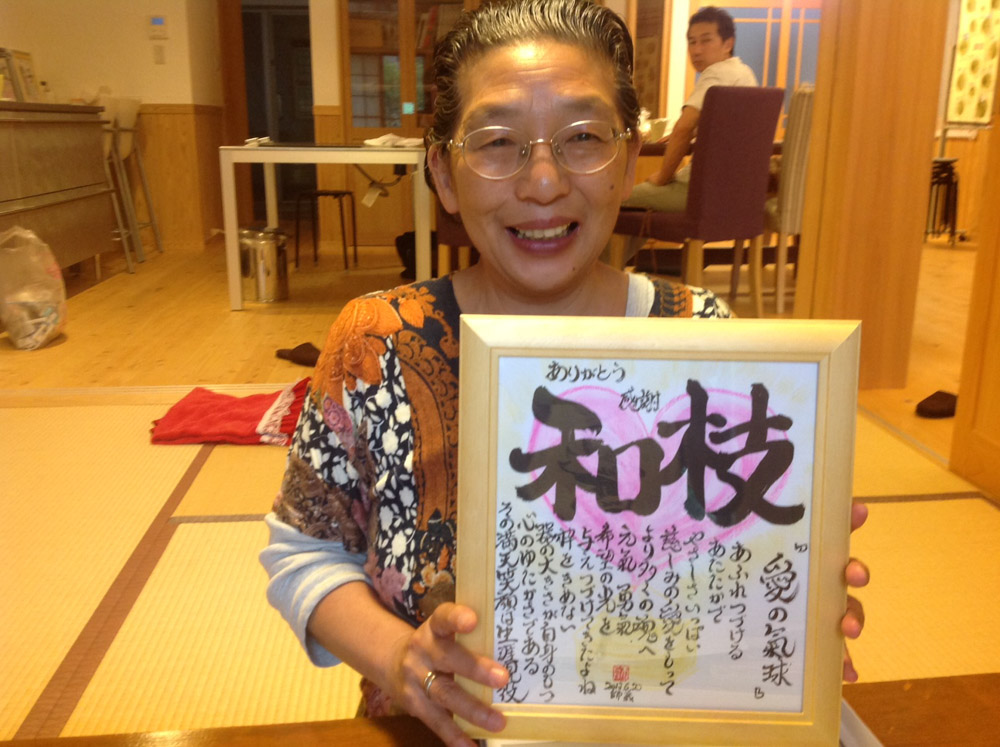 ありがとう
感謝
和枝
『愛の氣球』
あふれつづける
あたたかで
やさしさいっぱい
慈しみの愛をもって
より多くの魂へ
元氣 勇氣
希望の光を
与えつづけてるんだよね
枠をきめない
器の大きさが自身のもつ
心のゆたかさである
その満天笑顔は生涯現役